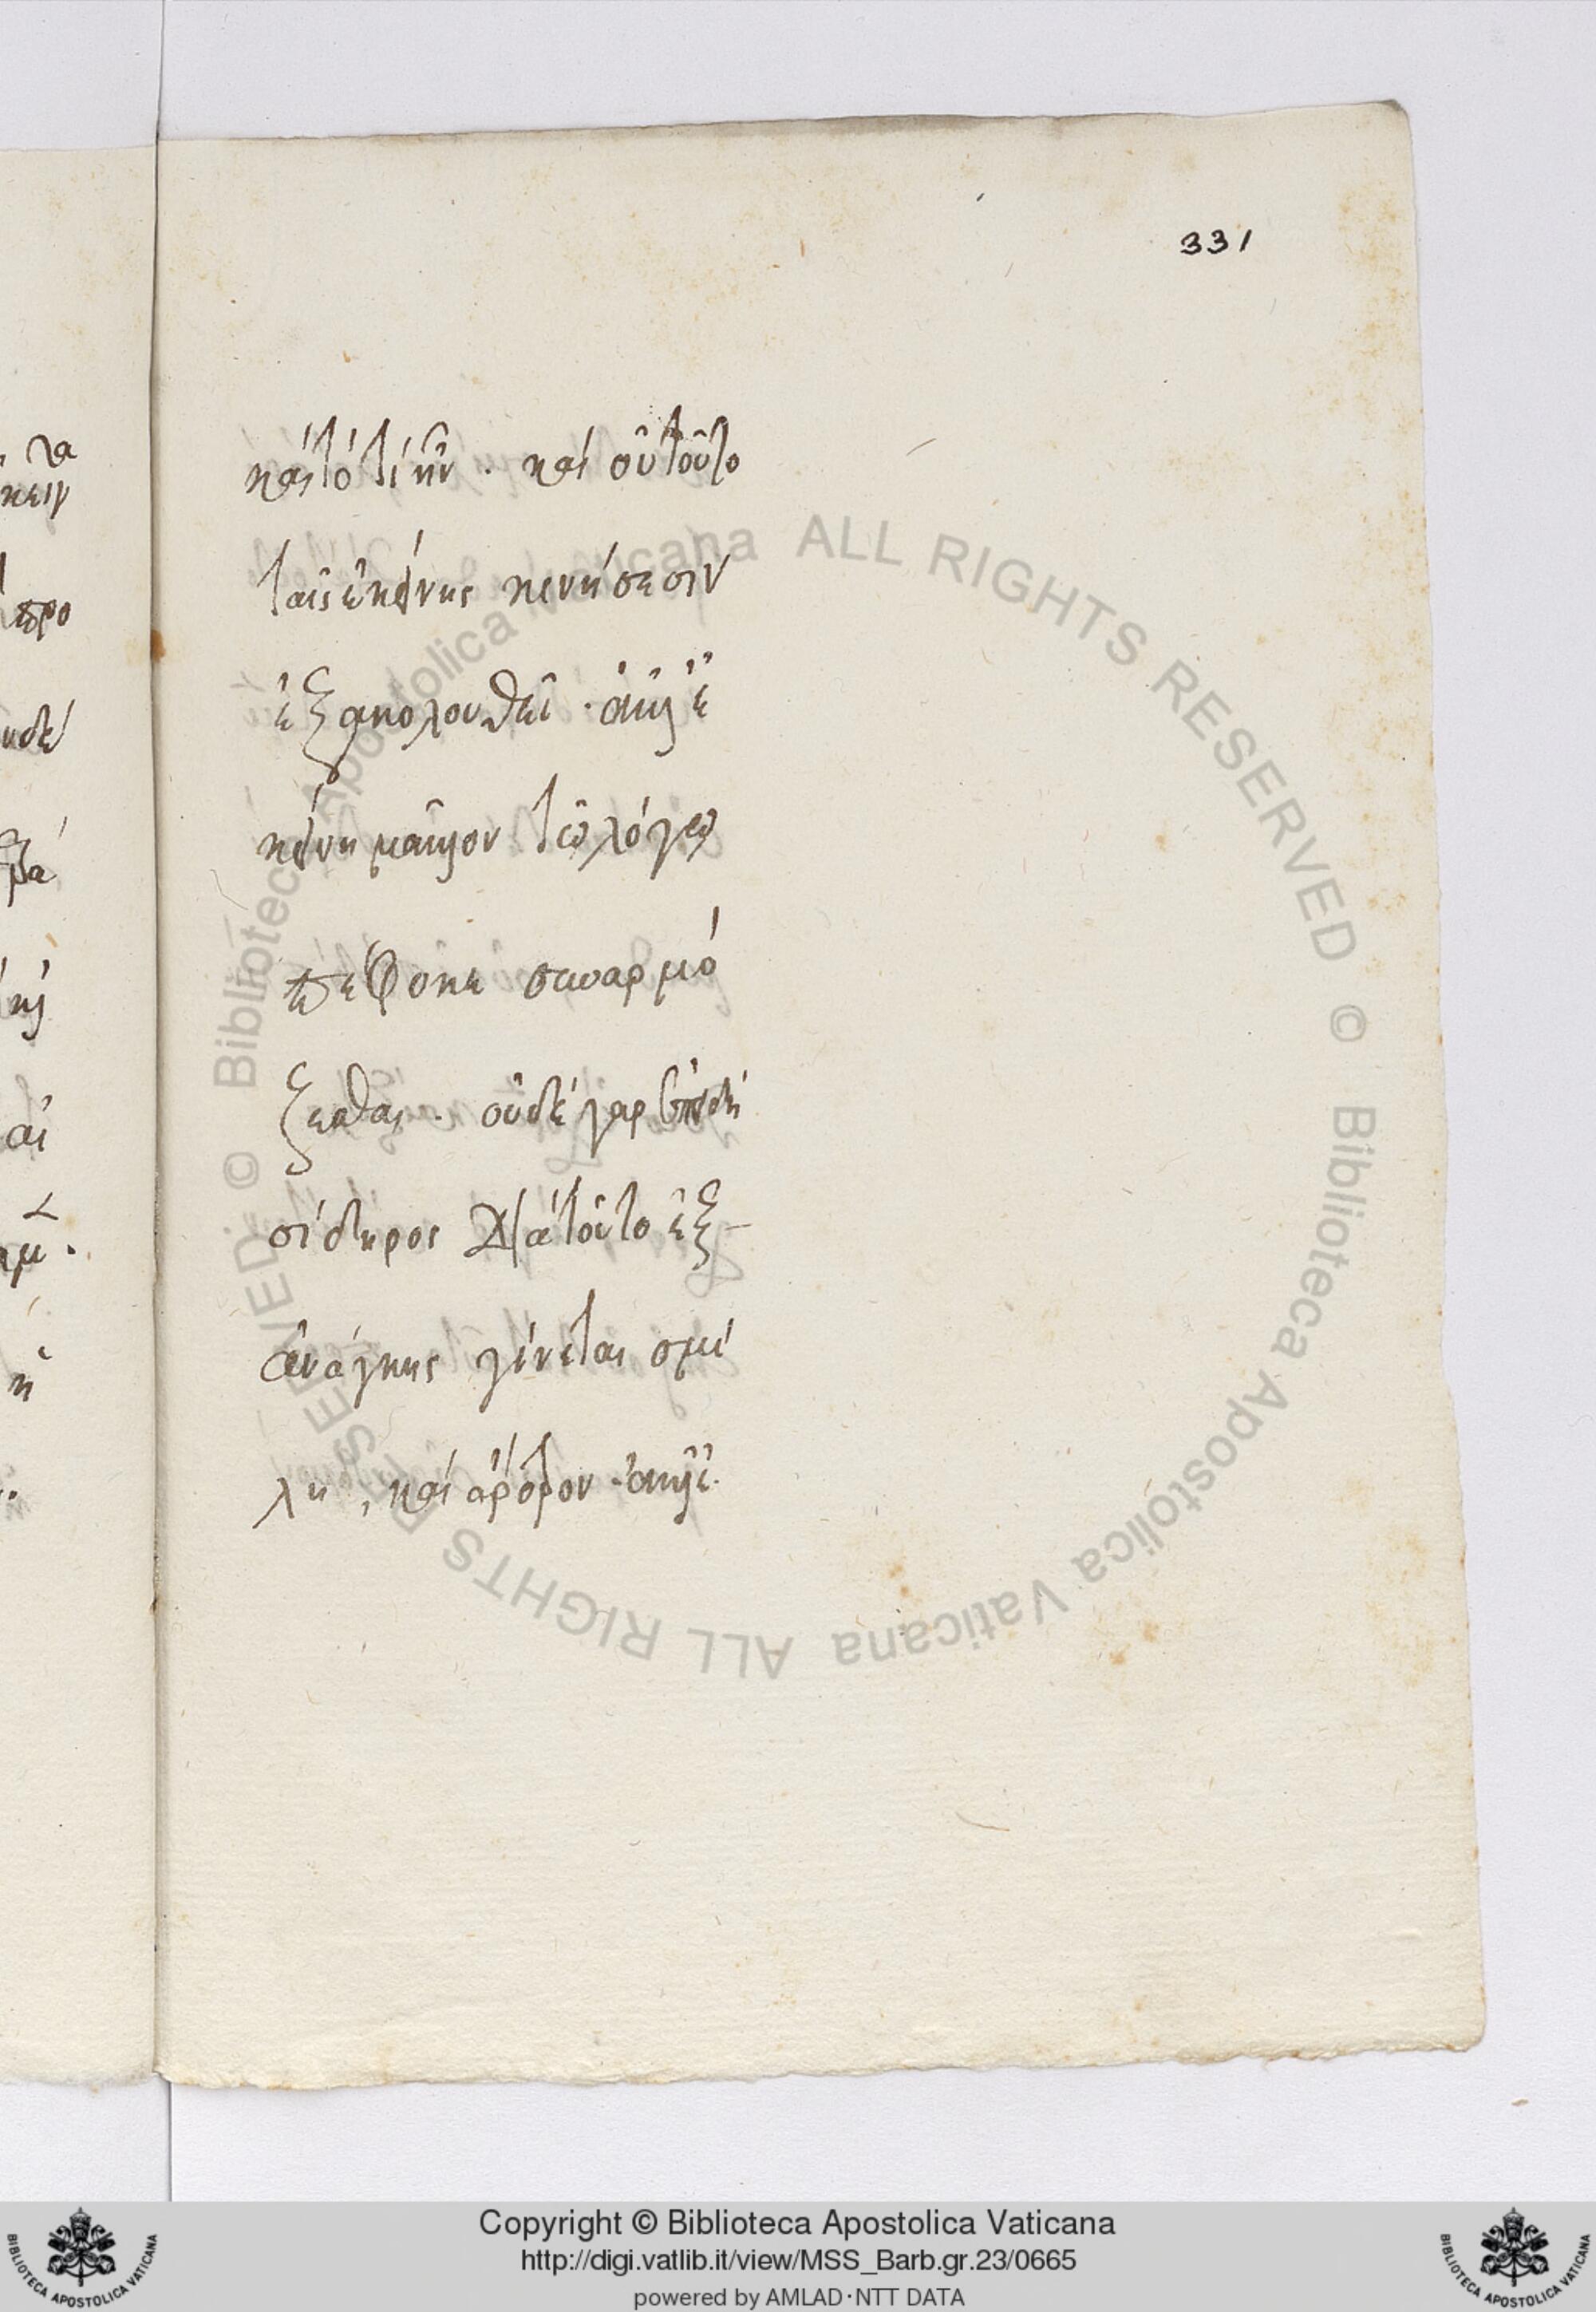 331
καὶ τὸ τί ἦν · καὶ οὐ τοῦτο
ταῖς ἐκείνης κινήσεσιν
ἐξακολουθεῖ · ἀλλ' ἐ
κείνη μᾶλλον τῶ λόγω
πέφυκε συναρμό
ζεσθαι · οὐδὲ γὰρ ἐπειδὴ
σίδηρος διὰ τοῦτο ἐξ
ἀνάγκης γίνεται σμί
λη , καὶ ἄροτρον · ἀλλ' ἐ
τα
κειν
προ
Copyright © Biblioteca Apostolica Vaticana
http://digi.vatlib.it/view/MSS_Barb.gr.23/0665
powered by AMLAD·NTT DATA
BIBLIOTECA APOSTOLICA VATICANA
BIBLIOTECA APOSTOLICA VATICANA
© Biblioteca Apostolica Vaticana ALL RIGHTS RESERVED © Biblioteca Apostolica Vaticana ALL RIGHTS RESERVED